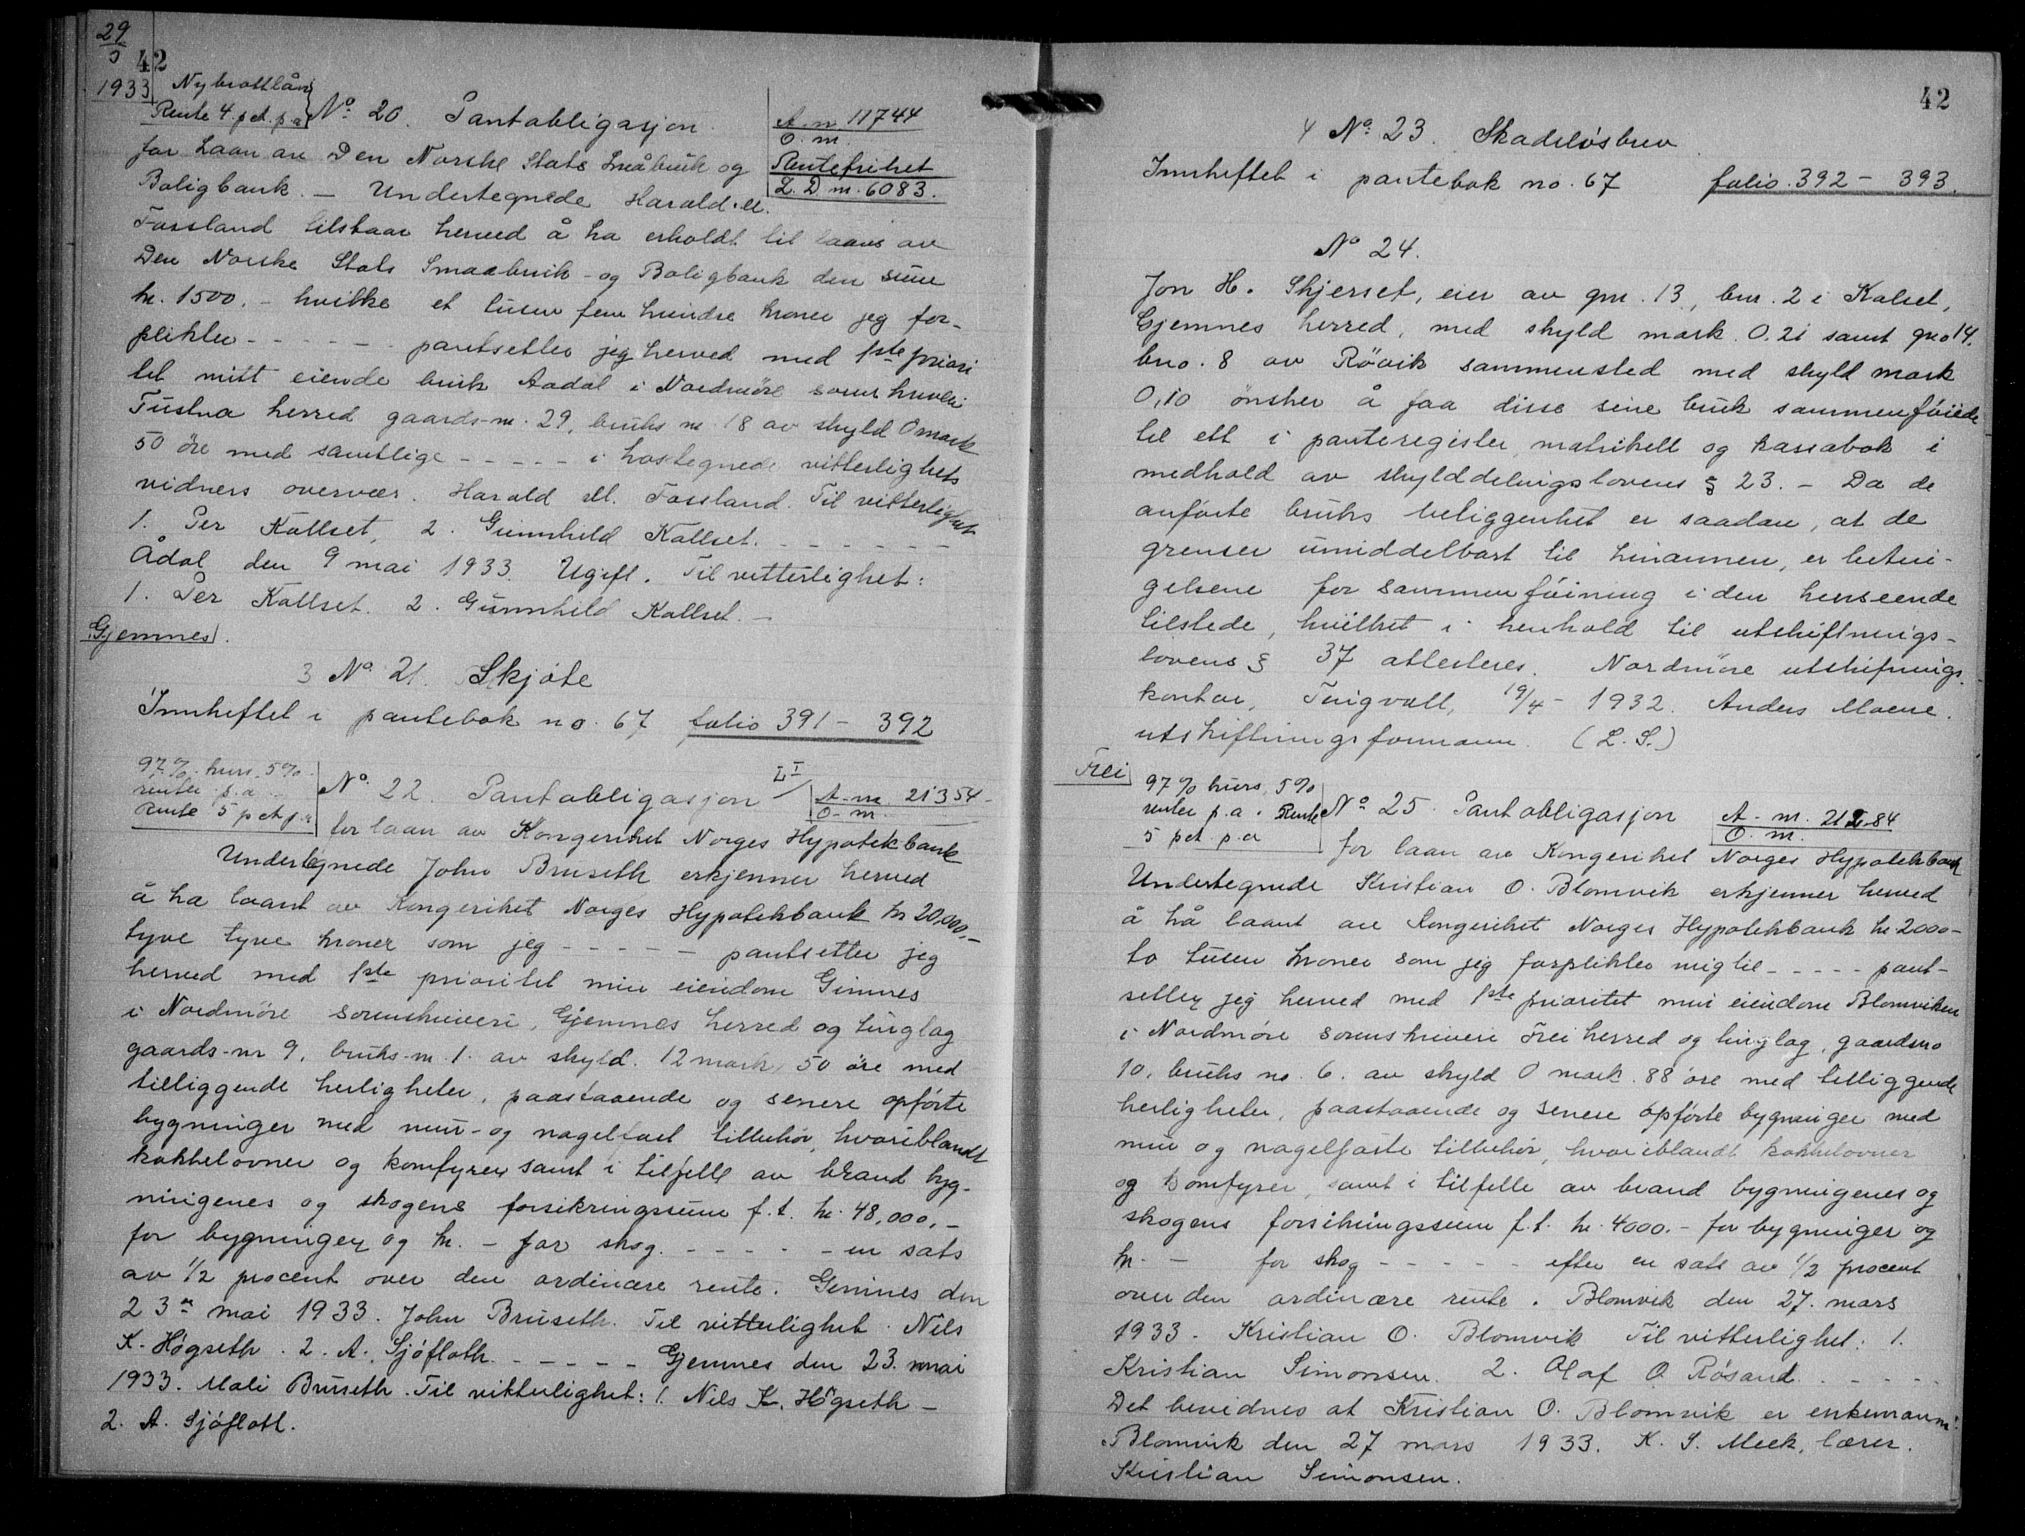 29
5 42
1933 Nybrottlån
Rente 4 pct. p.a. No. 20. Pantobligasjon. A. nr. 11744
O. nr.
for Laan av Den Norske Stats Småbruk og Rentefrihet
Boligbank. — Undertegnede Harald M. L. D. nr. 6083.
Fossland tilstaar herved å ha erholdt til laans av
Den Norske Stats Smaabruk- og Boligbank den sum
kr. 1500.- hvilke et tusen fem hundre kroner jeg for-
plikter - - - - - - pantsetter jeg herved med 1ste priori
tet mitt eiende bruk Aadal i Nordmøre
Tustna herred gaards-nr. 29, bruks nr. 18 av skyld 0 mark
50 øre med samtlige - - - - - i hostegnede vitterlighets
vidners overvær. Harald M. Fossland. Til vitterlighet
1. Per Kallset, 2. Gunnhild Kallset. - - - - - -
Ådal den 9 mai 1933. Ugift. Til vitterlighet:
1. Per Kallset. 2. Gunnhild Kallset. —
Gjemnes.
3 No. 21. Skjøte
Innheftet i pantebok no. 67 folio 391 - 392
97% kurs, 5%
renter p.a.
Rente 5 pct p.a No. 22. Pantobligasjon L I A-nr. 21354-
O-nr.
for laan av Kongeriket Norges Hypotekbank
Undertegnede John Bruseth erkjenner herved
å ha laant av Kongeriket Norges Hypotekbank kr 20,000.-
tyve tyve kroner som jeg - - - - - pantsetter jeg
herved med 1ste prioritet min eiendom Gimnes
i Nordmöre sorenskriveri, Gjemnes herred og tinglag
gaards-nr 9, bruks-nr. 1. av skyld. 12 mark 50 øre med
tilliggende herligheter, paastaaende og senere opførte
bygninger med mur- og nagelfast tilbehør, hvoriblandt
kakkelovner og komfyrer samt i tilfelle av brand byg-
ningenes og skogens forsikringssum f.t. kr. 48,000.-
for bygninger og kr. - for skog. - - - - - en sats
av 1/2 procent over den ordinære rente. Gimnes den
23de mai 1933. John Bruseth. Til vitterlighet. Nils
K. Høgseth. 2. A. Sjøfloth. - - - - - Gjemnes den 23. mai
1933. Mali Bruseth. Til vitterlighet: 1. Nils K. Högseth -
2. A. Sjøflott.
42
4 No. 23. Skadeløsbrev
Innheftet i pantebok no. 67 folio 392 - 393.
No 24.
Jon H. Skjerset, eier av gnr. 13, bnr. 2 i Kalset,
Gjemnes herred, med skyld mark. 0.21 samt gno 14.
bno. 8 av Røvik sammensted med skyld mark
0,10 ønsker å faa disse sine bruk sammenføiede
til ett i panteregister, matrikell og kassabok i
medhold av skylddelingslovens § 23. - Da de
anførte bruks beliggenhet er saadan, at de
grenser umiddelbart til hinannen, er betin-
gelsene for sammenføining i den henseende
tilstede, hvilket i henhold til utskiftnings-
lovens § 37 attesteres. Nordmöre utskifnings.
kontor, Tingvoll, 19/4 - 1932. Anders Moene.
utskiftningsformann. (L.S.)
Frei
97% kurs, 5%
renter p.a. Rente No. 25. Pantobligasjon A - nr. 21284
5 pct p.a O. nr.
for laan av Kongeriket Norges Hypotekbank
Undertegnede Kristian O. Blomvik erkjenner herved
å hå laant av Kongeriket Norges Hypotekbank kr 2000-
to tusen kroner som jeg forplikter mig til - - - - - pant-
setter jeg herved med 1ste prioritet min eiendom Blomviken
i Nordmöre sorenskriveri Frei herred og tinglag, gaardsno
10, bruks no. 6. av skyld 0 mark. 88 øre med tilliggende
herligheter, paastaaende og senere opførte bygninger med
mur og nagelfaste tilbehør, hvoriblandt kakkelovner
og komfyrer, samt i tilfelle av brand bygningenes og
skogens forsikringssum f.t. kr. 4000.- for bygninger og
kr. - for skog - - - - - efter en sats av 1/2 procent
over den ordinære rente. Blomvik den 27. mars
1933. Kristian O. Blomvik Til vitterlighet: 1.
Kristian Simonsen. 2. Olaf O. Røsand. - - - - -
Det bevidnes at Kristian O. Blomvik er enkemann:
Blomvik den 27 mars 1933. K. S. Meek, lærer.
Kristian Simonsen.